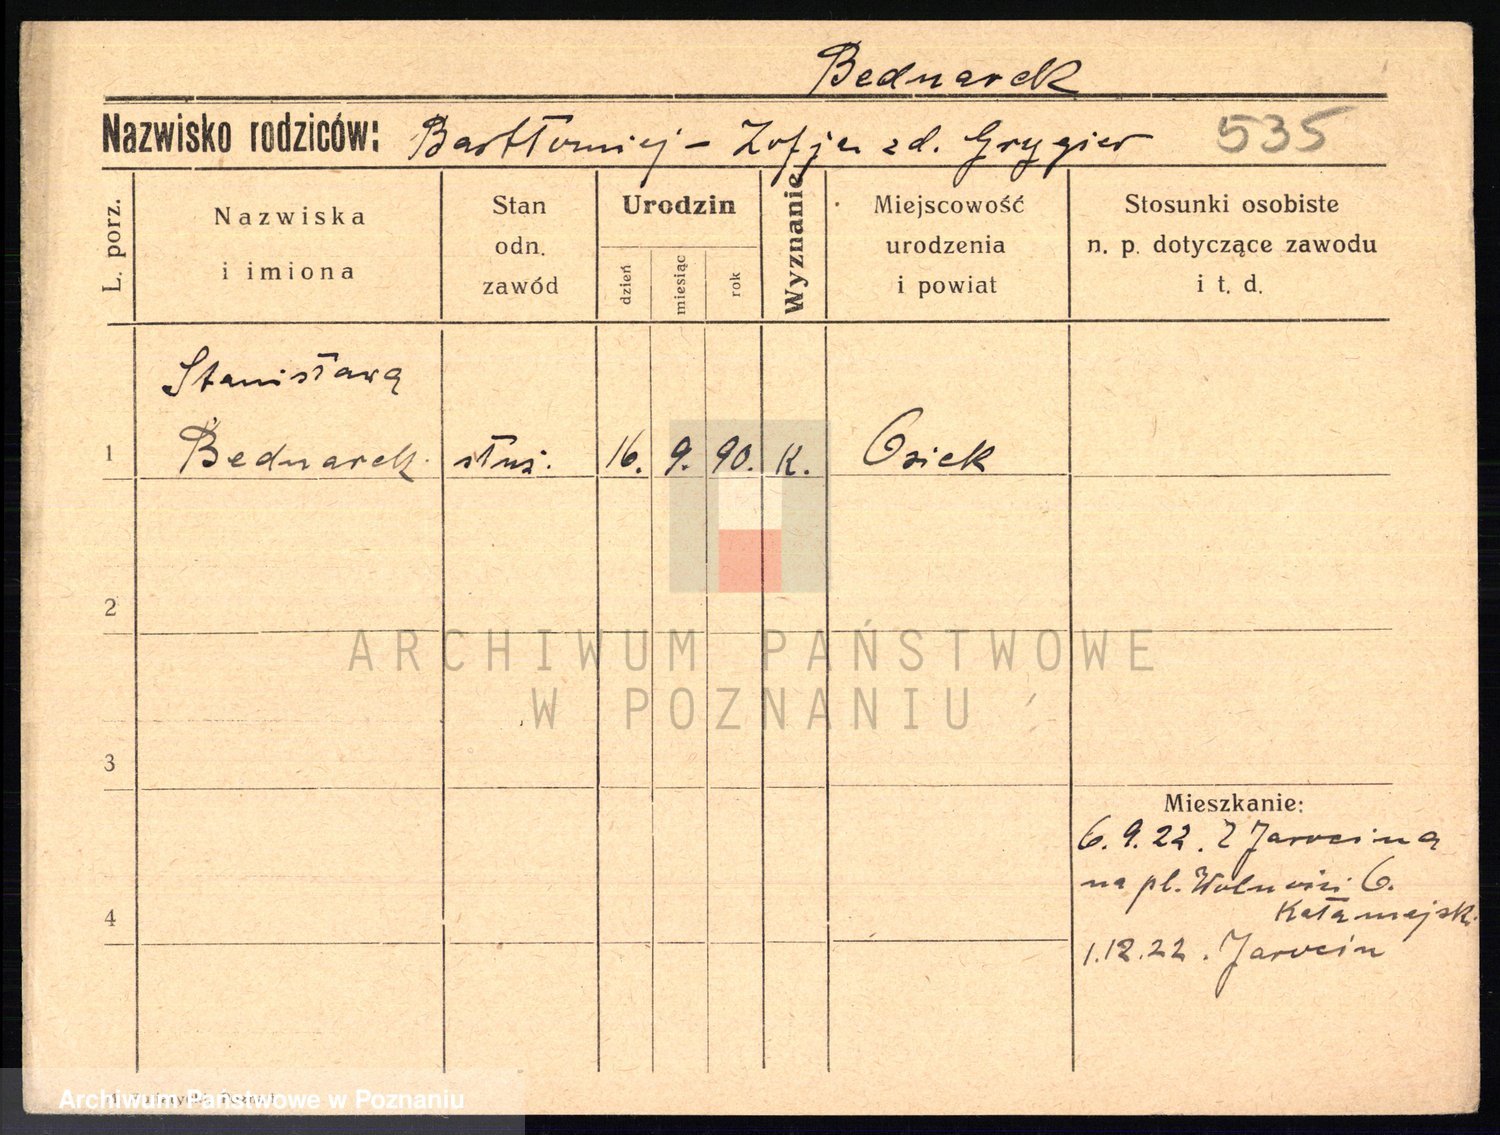 Bednarek
Nazwisko rodziców: Bartłomiej – Zofja zd. Grygier 535
L. porz.
Nazwiska
i imiona
Stan
odn.
zawód
Urodzin
dzień
miesiąc
rok
Wyznanie
Miejscowość
urodzenia
i powiat
Stosunki osobiste
n. p. dotyczące zawodu
i t. d.
Stanisława
1 Bednarek służ. 16. 9. 90. K. Osiek
2
ARCHIWUM PAŃSTWOWE
W POZNANIU
3
Mieszkanie:
6.9.22. Z Jarocina
na pl. Wolności 6.
4
1.12.22. Jarocin
Archiwum Państwowe w Poznaniu